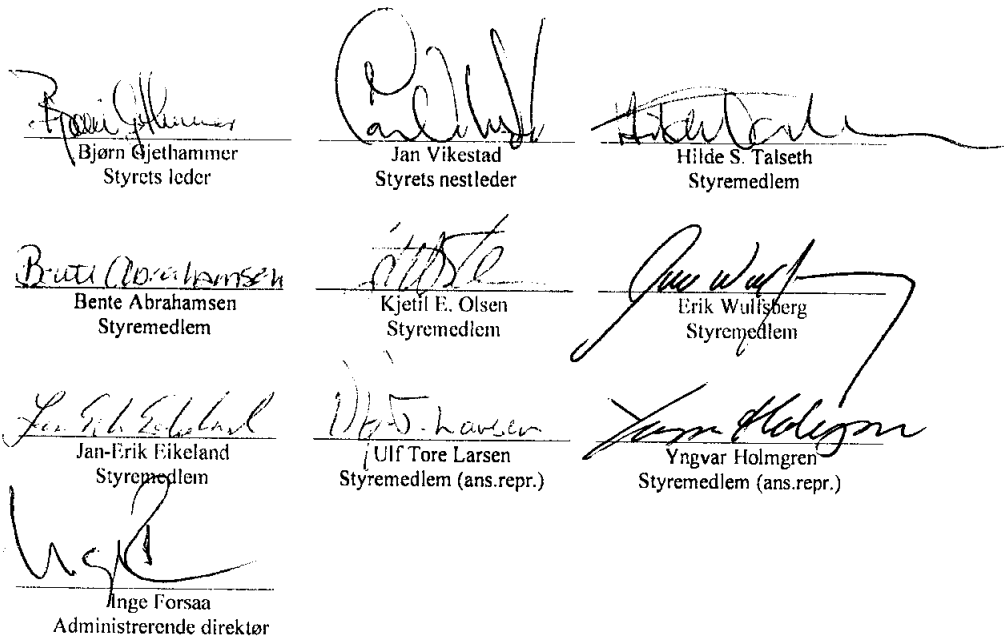 Bjørn Gjethammer
Styrets leder
Jan Vikestad
Styrets nestleder
Hilde S. Talseth
Styremedlem
Bente Abrahamsen
Bente Abrahamsen
Styremedlem
Kjetil E. Olsen
Styremedlem
Erik Wulfsberg
Styremedlem
Jan-Erik Eikeland
Styremedlem
Ulf Tore Larsen
Styremedlem (ans.repr.)
Yngvar Holmgren
Styremedlem (ans.repr.)
Inge Forsaa
Administrerende direktør